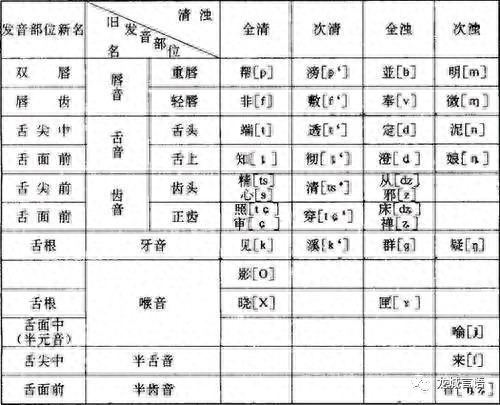 发音部位新名 旧名 发音部位 清浊 全清 次清 全浊 次浊
双唇 唇音 重唇 帮[p] 滂[p‘] 並[b] 明[m]
唇齿 轻唇 非[f] 敷[f‘] 奉[v] 微[ɱ]
舌尖中 舌音 舌头 端[t] 透[t‘] 定[d] 泥[n]
舌面前 舌上 知[ȶ] 彻[ȶ‘] 澄[ȡ] 娘[ȵ]
舌尖前 齿音 齿头 精[ts] 心[s] 清[ts‘] 从[dz] 邪[z]
舌面前 正齿 照[tɕ] 审[ɕ] 穿[tɕ‘] 床[dʑ] 禅[ʑ]
舌根 牙音 见[k] 溪[k‘] 群[g] 疑[ŋ]
影[O]
舌根 喉音 晓[X] 匣[ɣ]
舌面中(半元音) 喻[j]
舌尖中 半舌音 来[l]
舌面前 半齿音
龙城言语